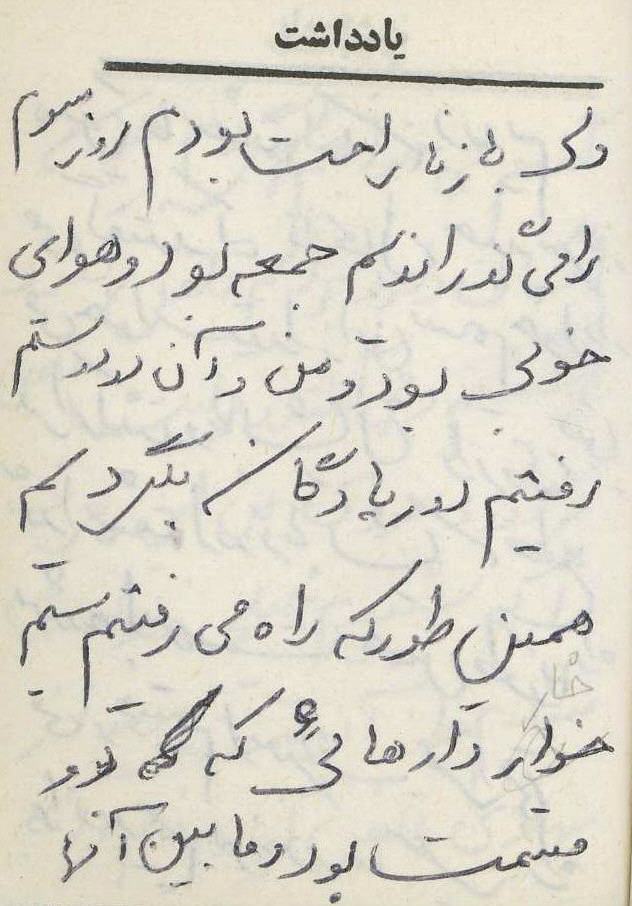 یادداشت
ولی باز ما راحت بودیم روز سوم
را می گذراندیم جمعه بود و هوای
خوبی بود و من و آن دو دوستم
رفتیم دور پادگان بگردیم
همین طور که راه می رفتیم سیم
خوار دارهائی که دو
قسمت بود و ما بین آنها